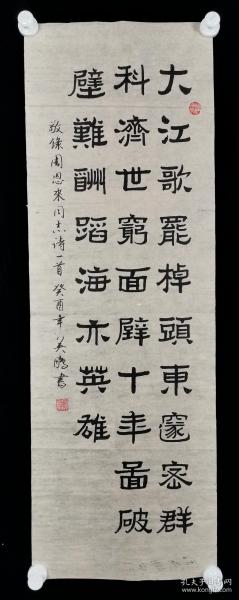 大江歌罷棹頭東邃密群
科濟世窮面壁十年啚破
壁難酬蹈海亦英雄
敬錄周恩來同志诗一首 癸酉年 吴鵬書
孔夫子旧书网